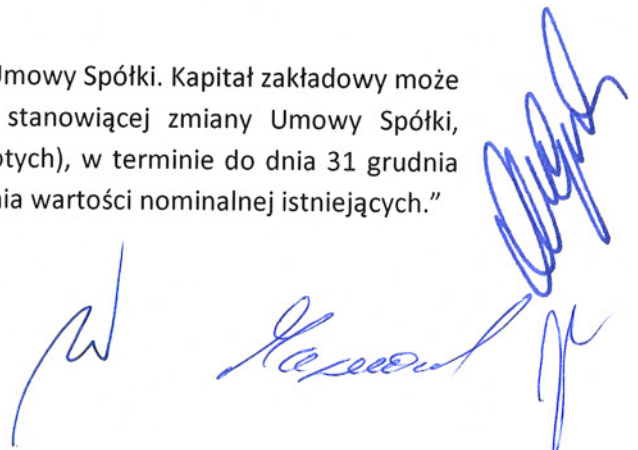 Umowy Spółki. Kapitał zakładowy może
stanowiącej zmiany Umowy Spółki,
otych), w terminie do dnia 31 grudnia
nia wartości nominalnej istniejących.”